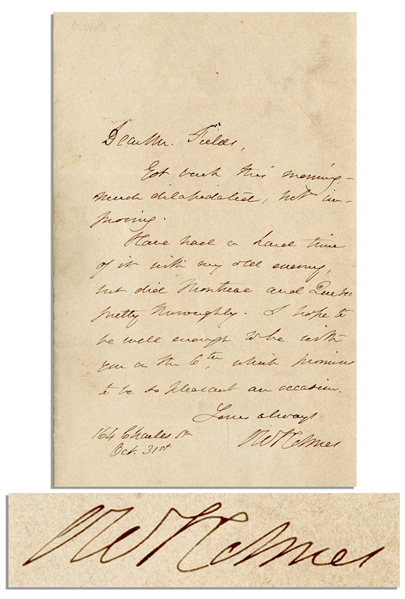 Dear Mr. Fields,
Got back this morning -
much dilapidated, but im-
proving.
Have had a hard time
of it with my old enemy,
but did Montreal and Quebec
pretty thoroughly. I hope to
be well enough to be with
you on the 6th, which promises
to be so pleasant an occasion.
Yours always
164 Charles St
OWHolmes
Oct. 31st
OWHolmes